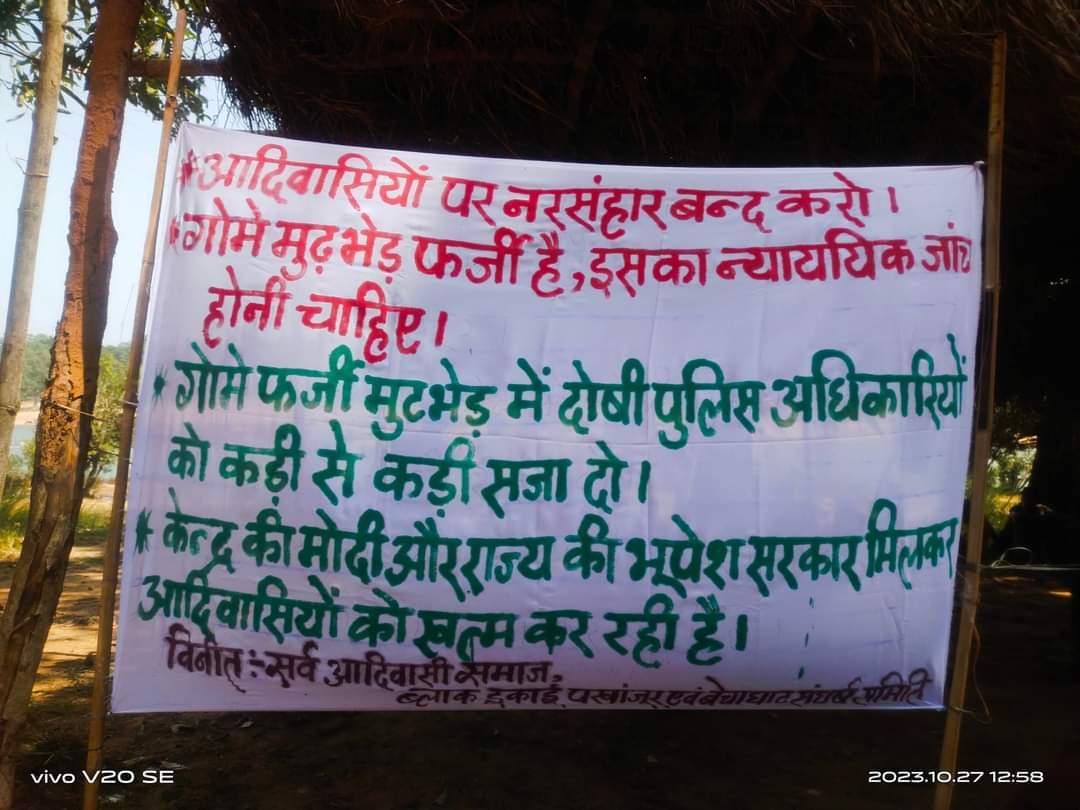 * आदिवासियों पर नरसंहार बन्द करो।
* गोमे मुढ़भेड़ फर्जी है, इसका न्याययिक जांच
होनी चाहिए।
* गोमे फर्जी मुटभेड़ में दोषी पुलिस अधिकारियों
को कड़ी से कड़ी सजा दो।
* केन्द्र की मोदी और राज्य की भूपेश सरकार मिलकर
आदिवासियों को खत्म कर रही है।
विनीत :- सर्व आदिवासी समाज,
ब्लाक इकाई पखांजूर एवं बेचाघाट संघर्ष समिति
vivo V20 SE
2023.10.27 12:58